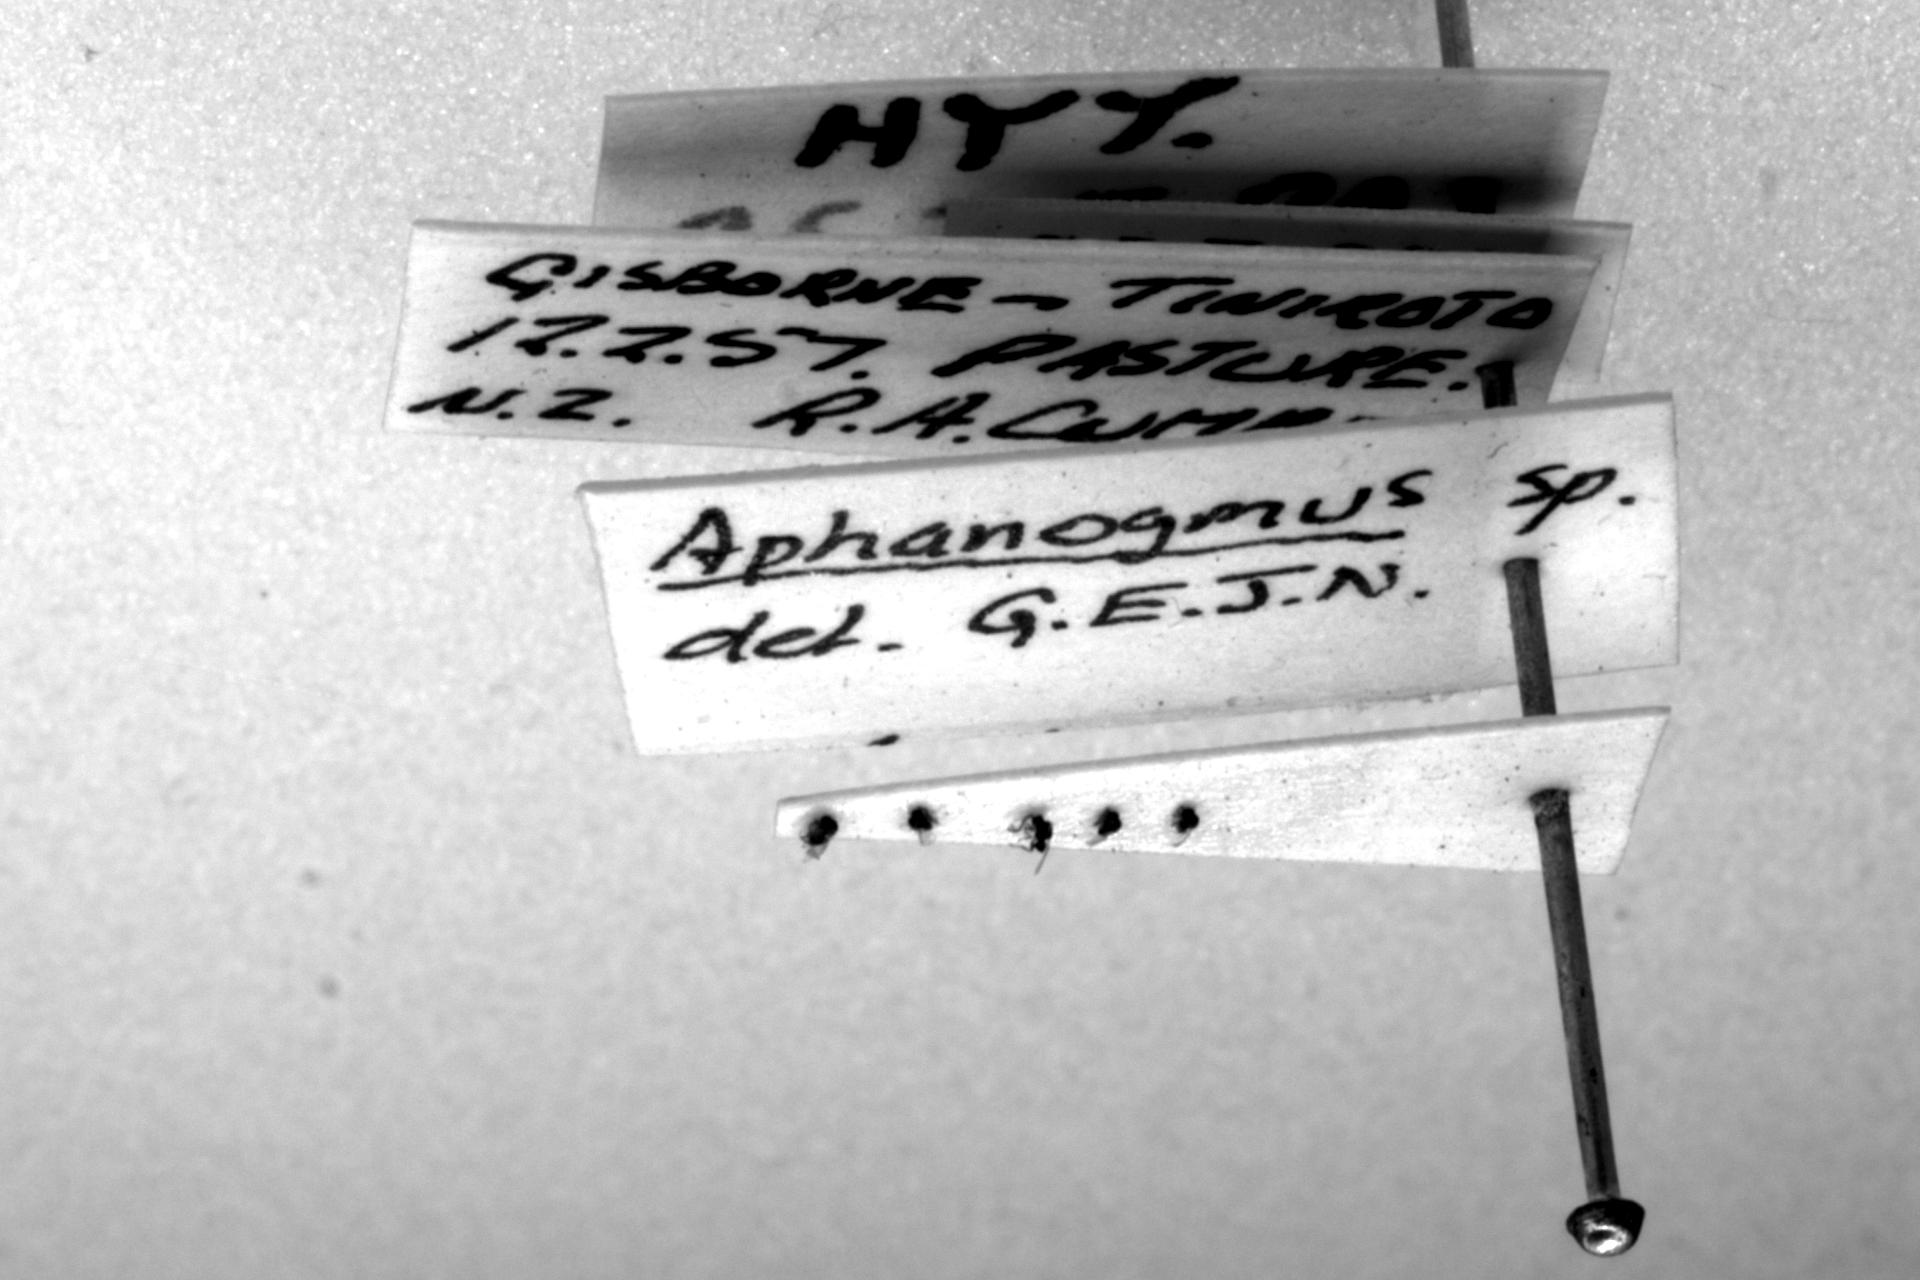 HYY.
GISBORNE - TINIROTO
12.2.57. PASTURE.
N.Z. R.A.
Aphanogmus sp.
det. G.E.J.N.